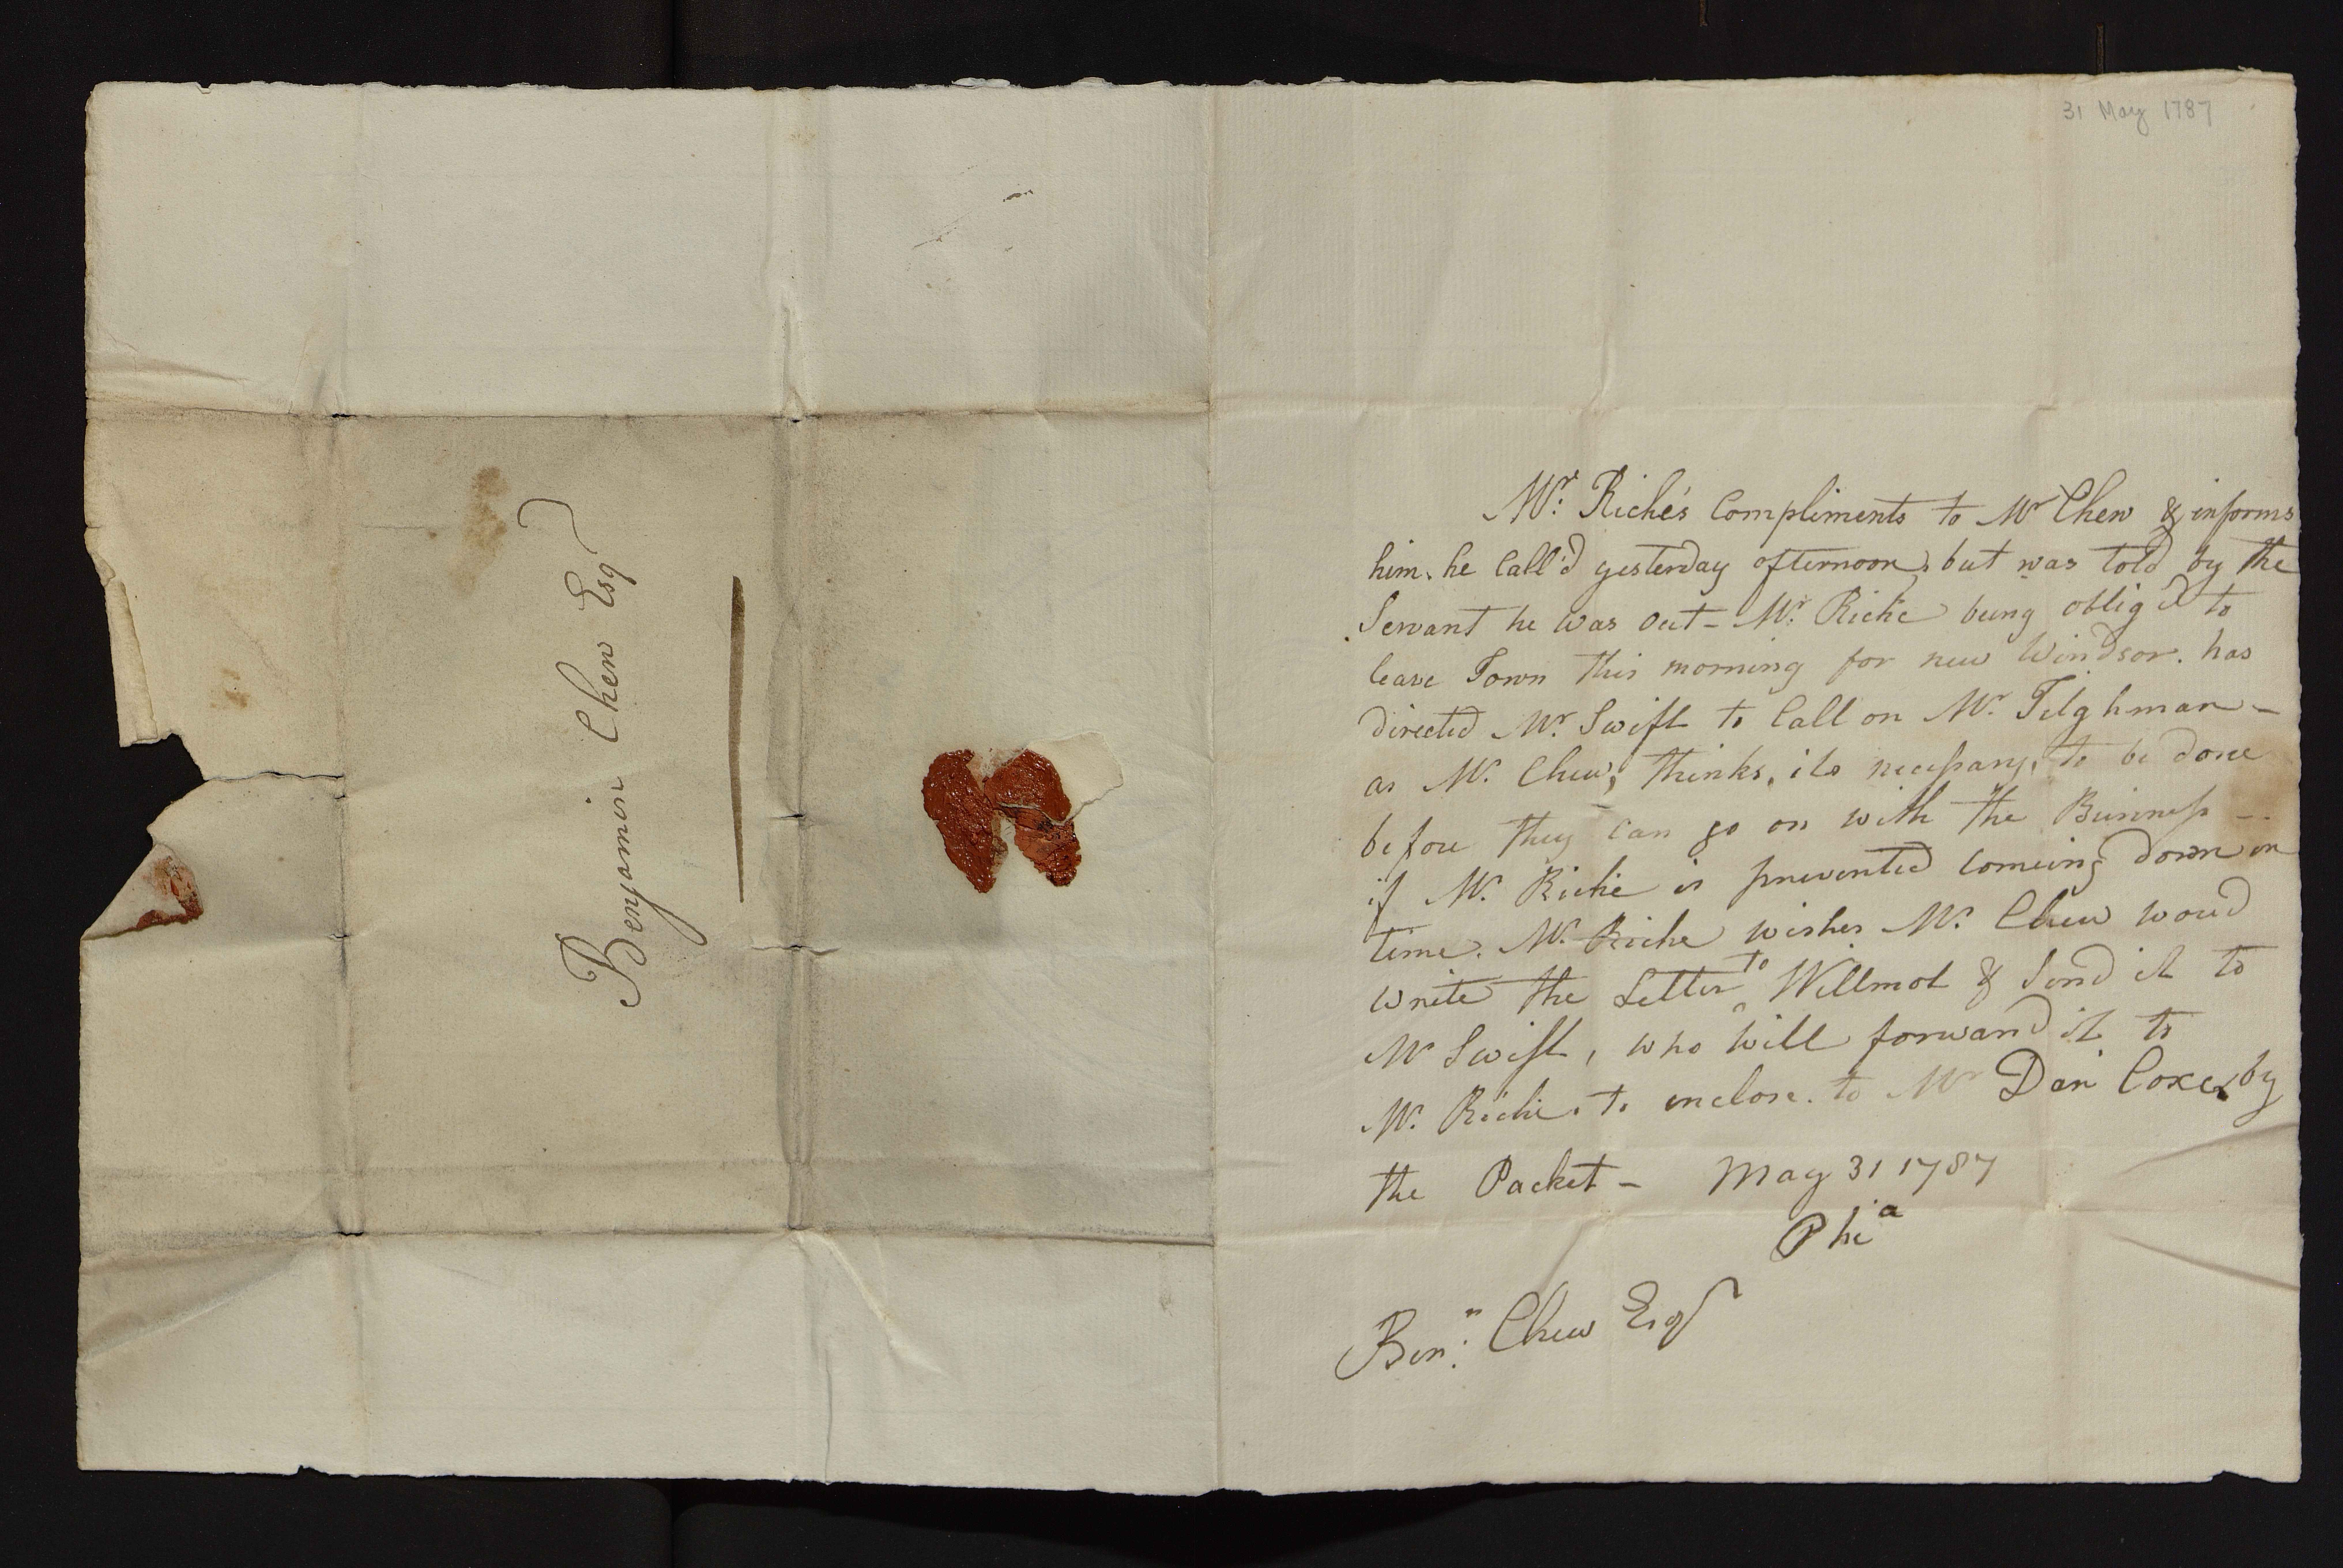 Benjamin Chew Esq
31 May 1787
Mr. Riché's Compliments to Mr Chew & informs
him, he Call'd yesterday afternoon, but was told by the
Servant he was out - Mr. Riché being oblig'd to
leave Town this morning for new Windsor. has
directed Mr. Swift to Call on Mr. Tilghman -
as Mr. Chew, thinks, its necessary, to be done
before they Can go on with the Buinness -
if Mr. Riché is prevented Comeing down in
time. Mr. Riche wishes Mr. Chew woud
write the Letter to Willmot & Send it to
Mr Swift, who will forward it to
Mr. Riché. to enclose. to Mr Dan Coxe by
the Packet - May 31 1787
Phia
Benn: Chew Esqr